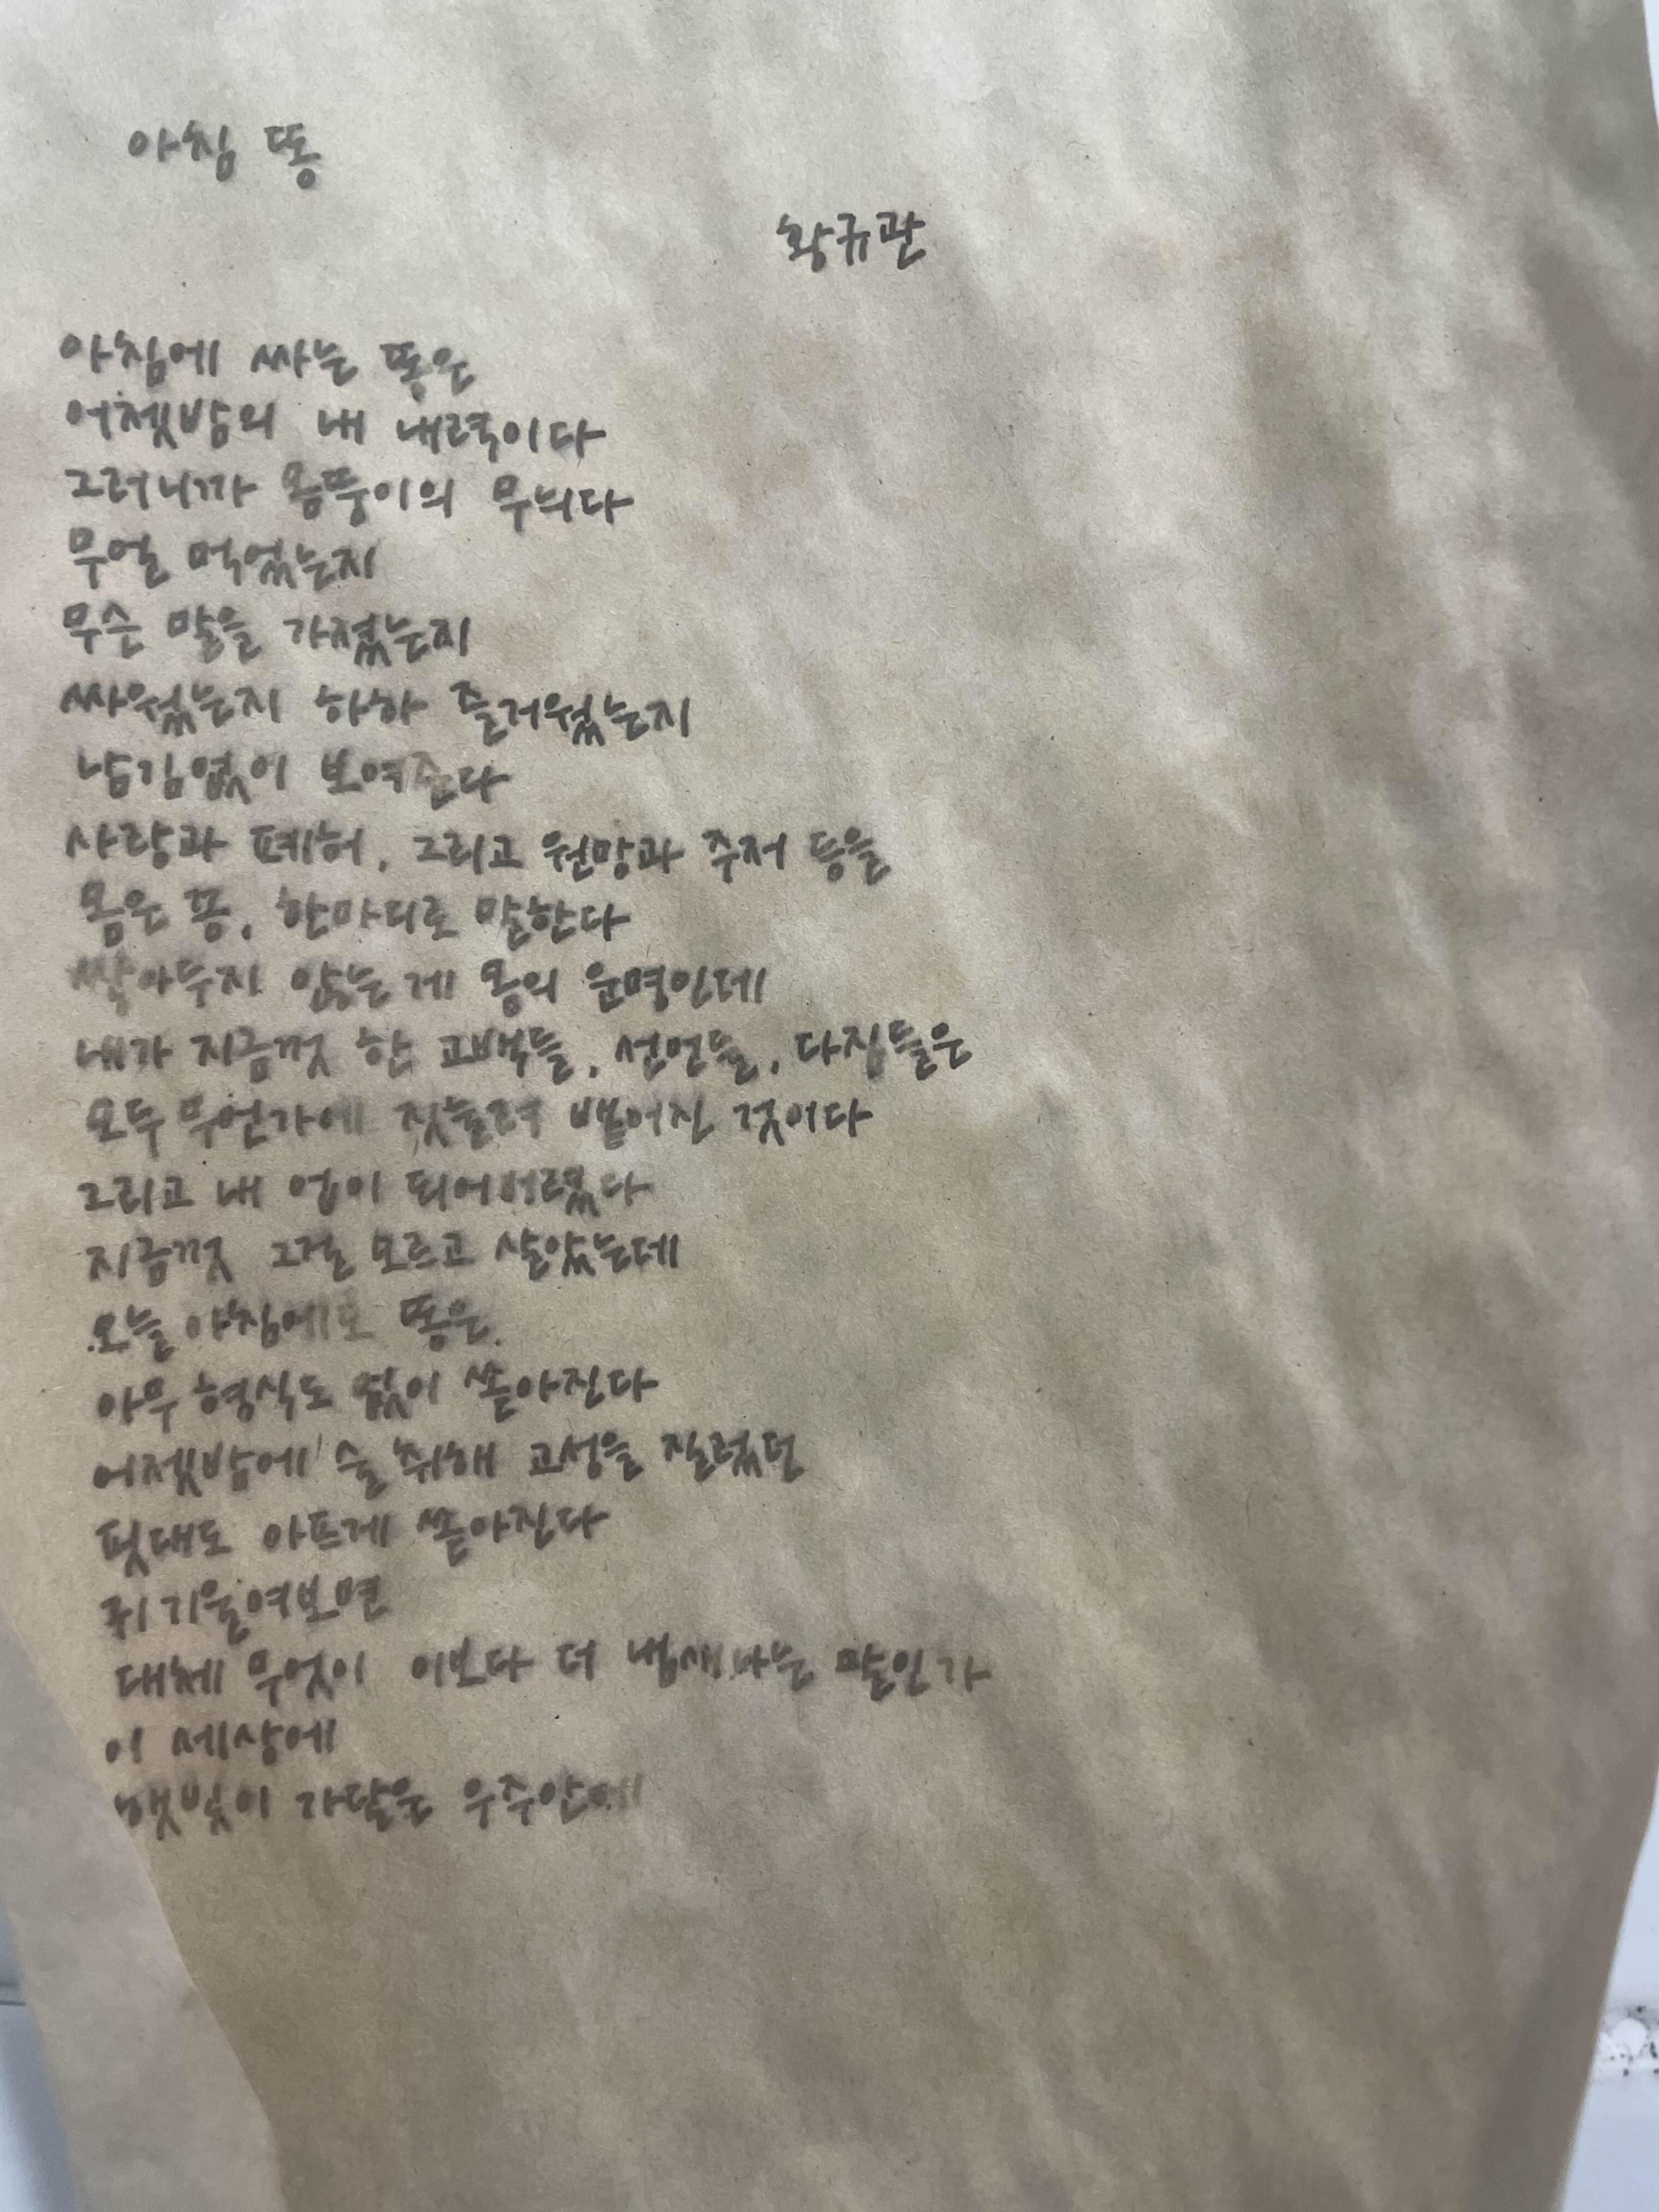 아침 똥
황규관
아침에 싸는 똥은
어젯밤의 내 내력이다
그러니까 몸뚱이의 무늬다
무얼 먹었는지
무슨 말을 가졌는지
싸웠는지 하하 즐거웠는지
남김없이 보여준다
사랑과 폐허, 그리고 원망과 주저 등을
몸은 똥, 한마디로 말한다
쌓아두지 않는 게 몸의 운명인데
내가 지금껏 한 고백들, 선언들, 다짐들은
모두 무언가에 짓눌려 뱉어진 것이다
그리고 내 업이 되어버렸다
지금껏 그걸 모르고 살았는데
오늘 아침에도 똥은
아무 형식도 없이 쏟아진다
어젯밤에 술 취해 고성을 질렀던
핏대도 아프게 쏟아진다
귀 기울여보면
대체 무엇이 이보다 더 냄새나는 말인가
이 세상에
햇빛이 가닿은 우주안에